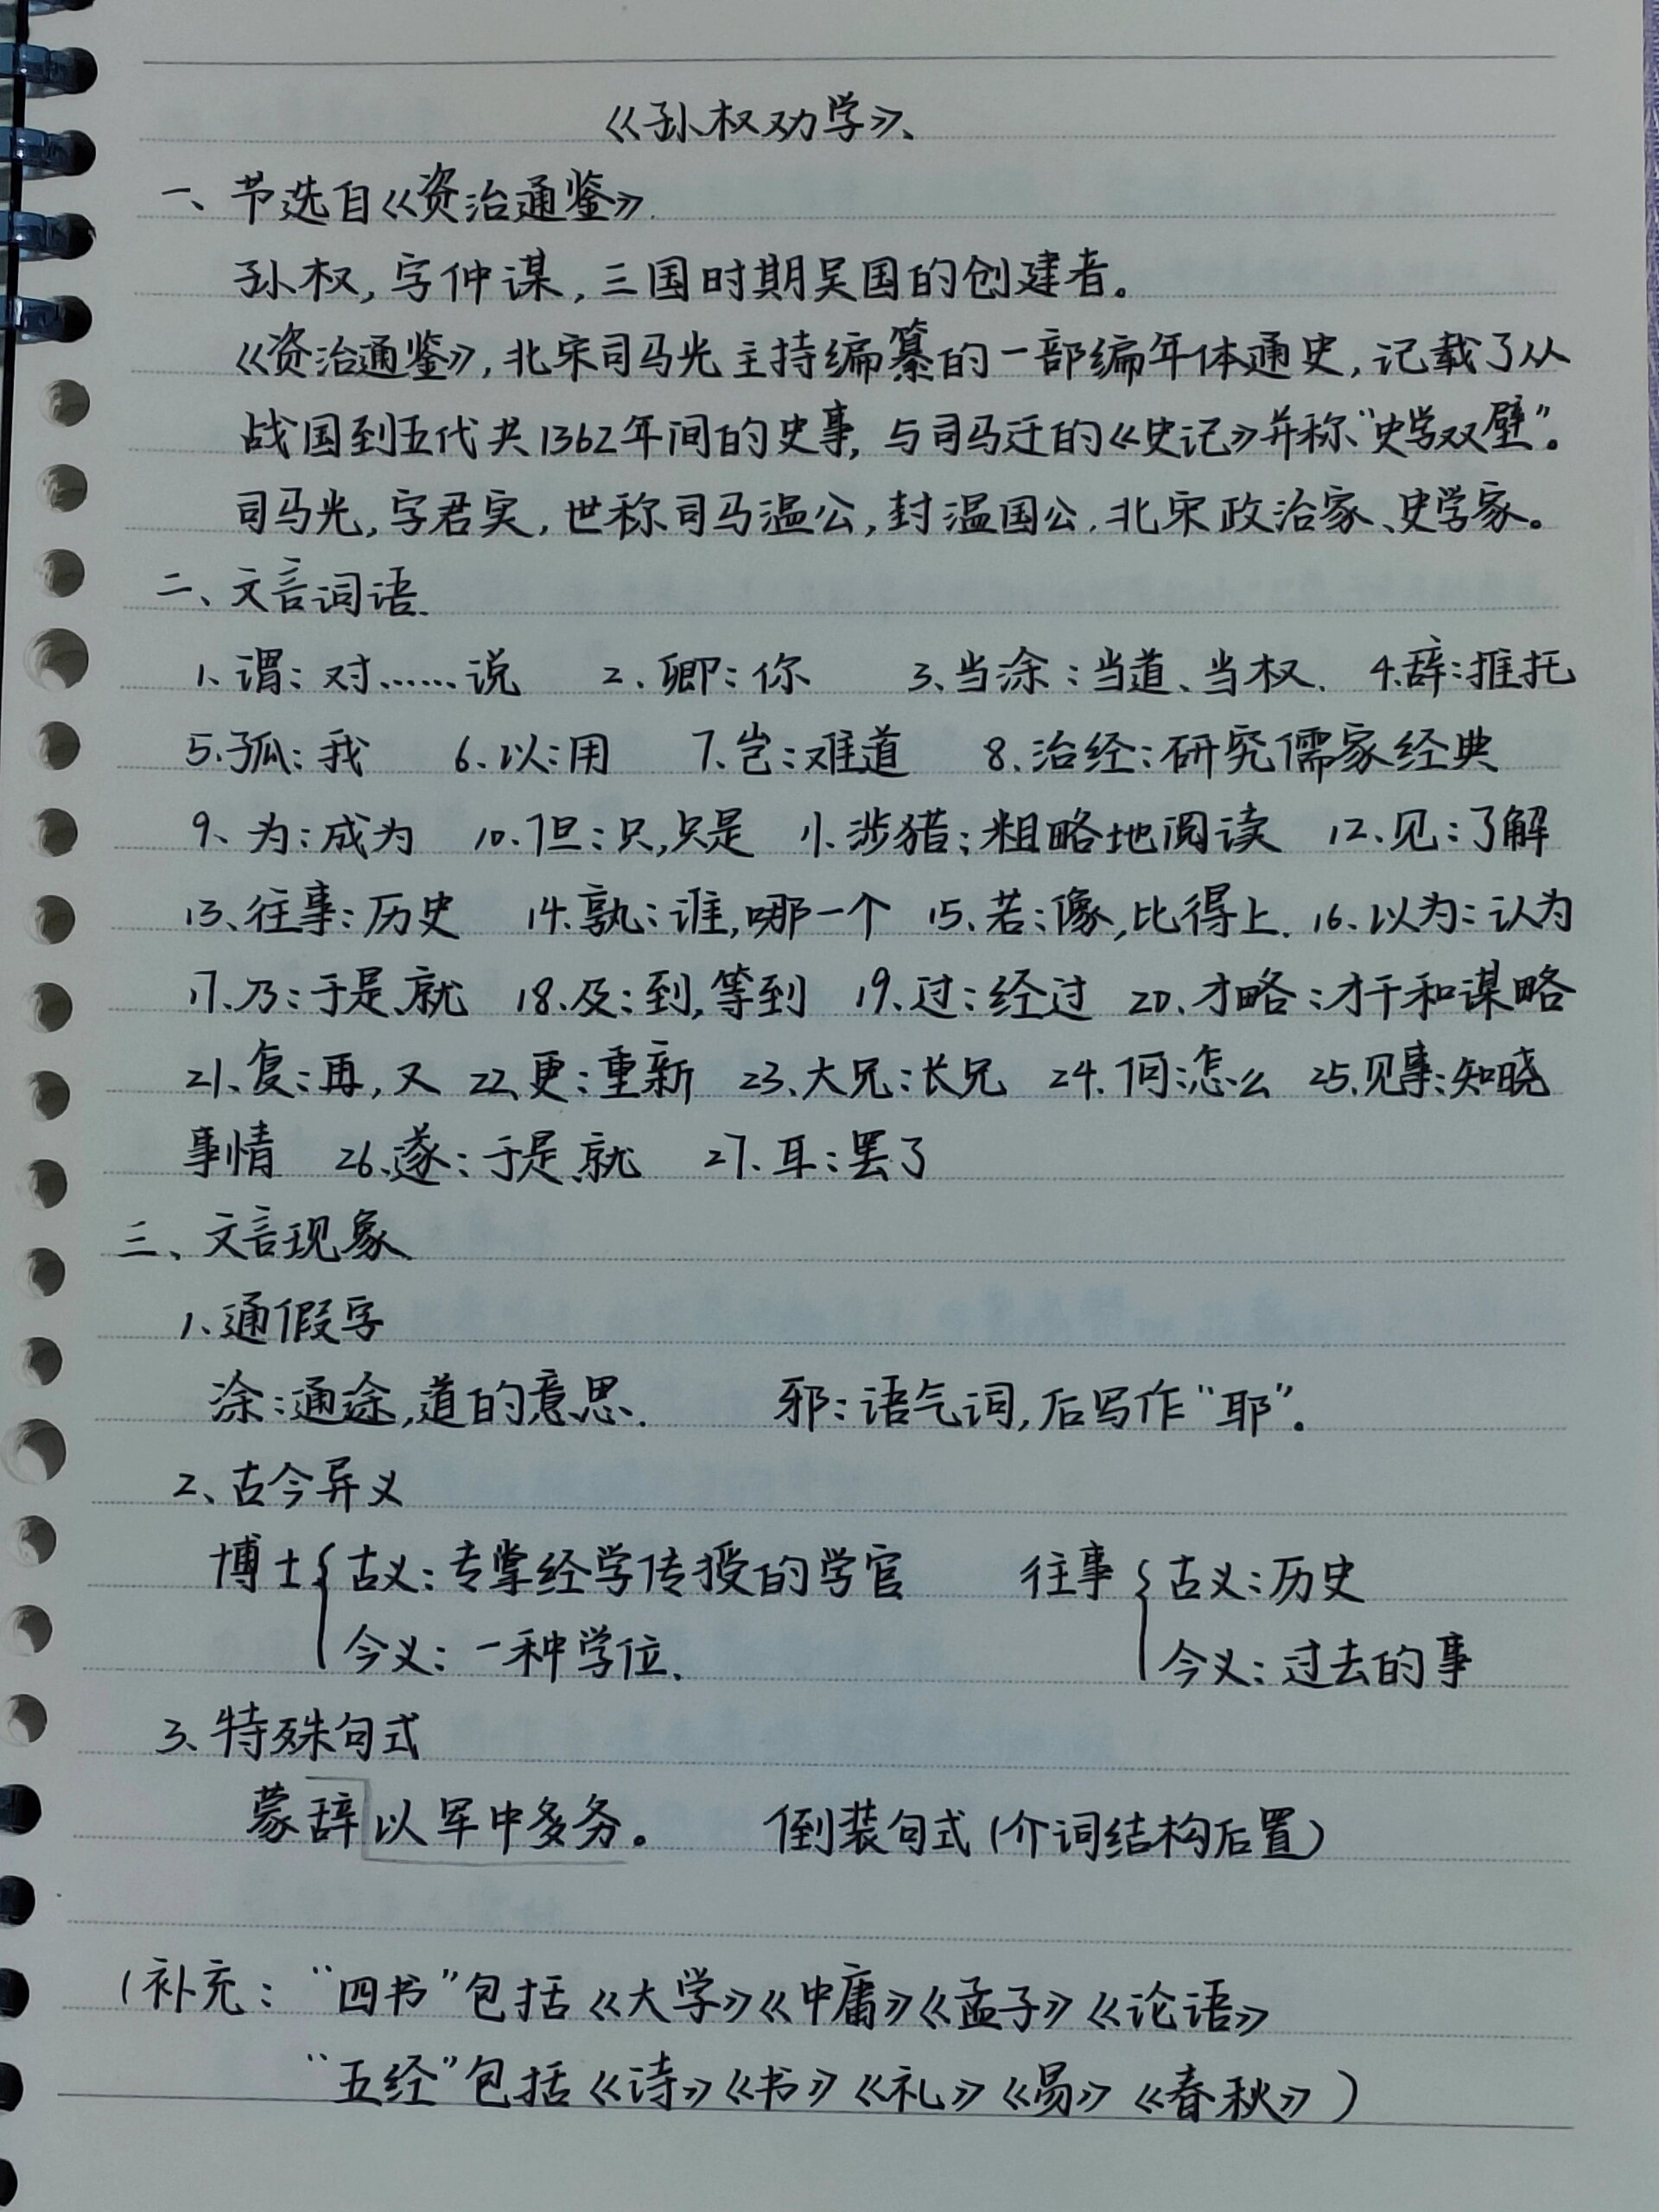 《孙权劝学》、
一、节选自《资治通鉴》.
孙权,字仲谋,三国时期吴国的创建者。
《资治通鉴》,北宋司马光主持编纂的一部编年体通史,记载了从
战国到五代共1362年间的史事,与司马迁的《史记》并称“史学双壁”。
司马光,字君实,世称司马温公,封温国公,北宋政治家、史学家。
二、文言词语.
1、谓:对……说 2.卿:你 3、当涂:当道、当权. 4.辞:推托
5.孤:我 6.以:用 7.岂:难道 8.治经:研究儒家经典
9、为:成为 10.但:只,只是 11.涉猎:粗略地阅读 12.见:了解
13、往事:历史 14.孰:谁,哪一个 15.若:像,比得上. 16.以为:认为
17.乃:于是,就 18.及:到,等到 19.过:经过 20.才略:才干和谋略
21.复:再,又 22.更:重新 23.大兄:长兄 24.何:怎么 25.见事:知晓
事情 26.遂:于是,就 27.耳:罢了
三、文言现象.
1、通假字
涂:通途,道的意思. 邪:语气词,后写作“耶”。
2、古今异义
博士{古义:专掌经学传授的学官 往事{古义:历史
今义:一种学位. 今义:过去的事
3.特殊句式
蒙辞以军中多务。 倒装句式(介词结构后置)
(补充:“四书”包括《大学》《中庸》《孟子》《论语》
“五经”包括《诗》《书》《礼》《易》《春秋》)